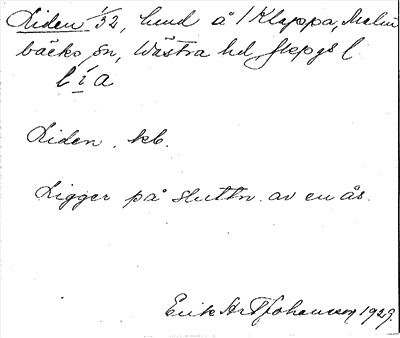 Liden 1/32, hmd å 1 Klappa, Malm
bäcks sn, Västra hd, Jkpgs l
l i a
Liden. kb.
Ligger på sluttn. av en ås.
Erik Johansson 1929.